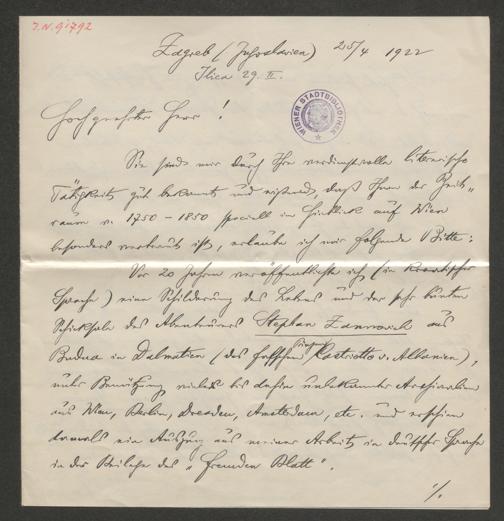 J.N. 91792
Zagreb (Jugoslavien) 25/4 1922
Ilica 29. II.
WIENER STADTBIBLIOTHEK
Hochgeehrter Herr!
Sie sind mir durch Ihre verdienstvolle literarische
Tätigkeit gut bekannt und wissend, daß Ihnen der Zeit„
raum v. 1750 – 1850 speciell im Hinblick auf Wien
besonders vertraut ist, erlaube ich mir folgende Bitte:
Vor 20 Jahren veröffentlichte ich (in kroatischer
Sprache) eine Schilderung des Lebens und der sehr bunten
Schicksale des Abenteurers Stephan Zannowich aus
Budua in Dalmatien (des falschen Kastriotto v. Albanien),
unter Benützung vieler bis dahin unbekannter Archivalien
aus Wien, Berlin, Dresden, Amsterdam, etc. und erschien
damals ein Auszug aus meiner Arbeit in deutscher Sprache
in der Beilage des „Fremden Blatt".
./.